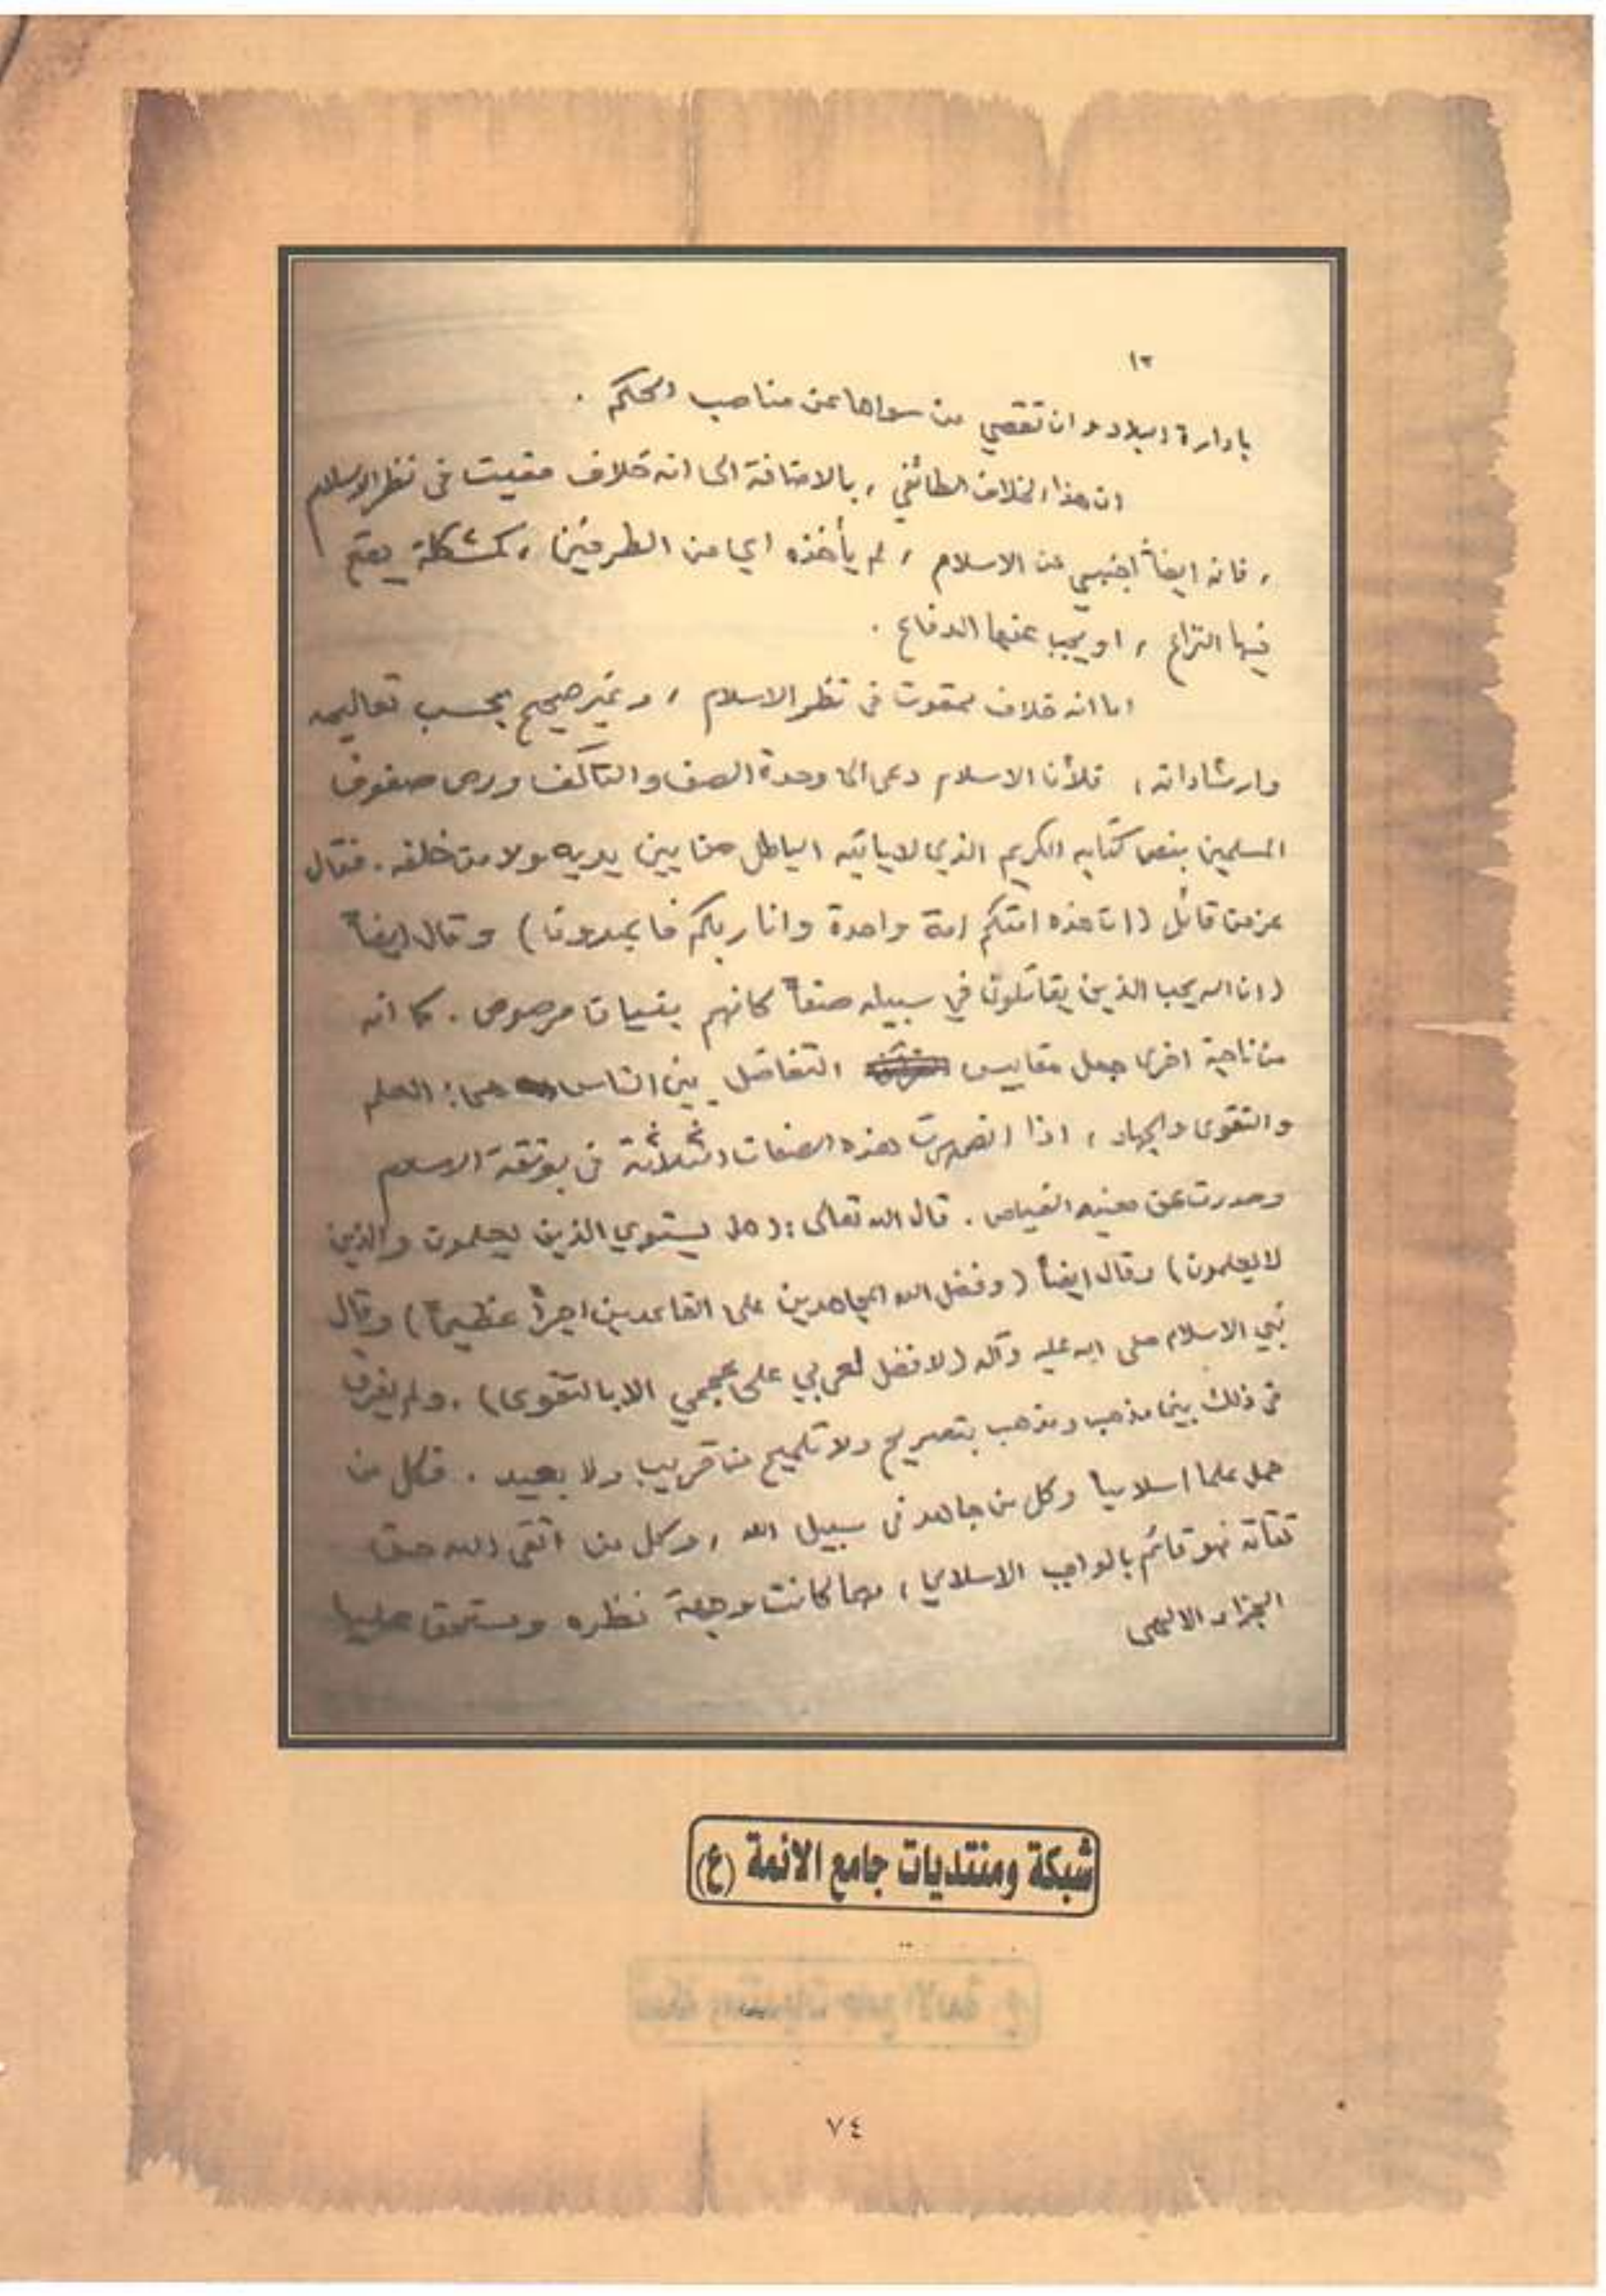 ١٢
بادارة البلاد و ان تقصي من سواها عن مناصب الحكم .
ان هذا الخلاف الطائفي ، بالاضافة الى انه خلاف مقيت في نظر الاسلام
، فانه ايضاً اجنبي عن الاسلام ، لم يأخذه اي من الطرفين ، كمشكلة يقع
فيها النزاع ، او يجب عنها الدفاع .
اما انه خلاف ممقوت في نظر الاسلام ، و غير صحيح بحسب تعاليمه
وارشاداته ، فلأن الاسلام دعى الى وحدة الصف والتآلف ورص صفوف
المسلمين بنص كتابه الكريم الذي لا ياتيه الباطل من بين يديه ولا من خلفه . فقال
عز من قائل (ان هذه امتكم امة واحدة وانا ربكم فاعبدون) وقال ايضاً
(ان الله يحب الذين يقاتلون في سبيله صفاً كانهم بنيان مرصوص . كما انه
من ناحية اخرى جعل مقاييس التفاضل بين الناس هي : العلم
والتقوى والجهاد ، اذا انصهرت هذه الصفات الثلاثة في بوتقة الاسلام
وصدرت عن معينه الفياض . قال الله تعالى : (هل يستوي الذين يعلمون والذين
لا يعلمون) وقال ايضاً (وفضل الله المجاهدين على القاعدين اجراً عظيماً) وقال
نبي الاسلام صلى الله عليه وآله (لا فضل لعربي على عجمي الا بالتقوى) . ولم يفرق
في ذلك بين مذهب ومذهب بتصريح ولا تلميح من قريب ولا بعيد . فكل من
حمل علما اسلاميا وكل من جاهد في سبيل الله ، وكل من اتقى الله حق
تقاته فهو قائم بالواجب الاسلامي ، مهما كانت وجهة نظره ويستحق عليها
الجزاء الالهي
شبكة ومنتديات جامع الائمة (ع)
٧٤